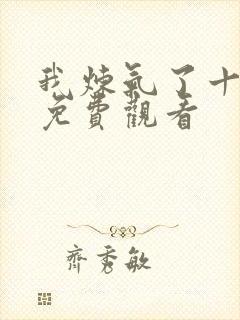 我煉氣了十
免費觀看
齊秀敏